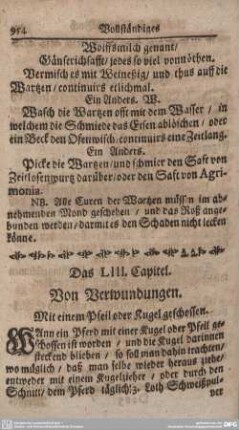 914 Vollständiges
Wolffsmilch genant/
Gänserichsafft/ jedes so viel vonnöthen.
Vermisch es mit Weineßig/ und thus auff die
Wartzen/ continuirs etlichmal.
Ein Anders. W.
Wasch die Wartzen offt mit dem Wasser/ in
welchem die Schmiede das Eisen ablöschen/ oder
ein Beck den Ofenwisch: continuirs eine Zeitlang.
Ein Anders.
Picke die Wartzen/ und schmier den Safft von
Zeitlosenwurtz darüber/ oder den Safft von Agri-
monia.
NB. Alle Curen der Wartzen müssen im ab-
nehmenden Mond geschehen/ und das Roß ange-
bunden werden/ darmit es den Schaden nicht lecken
könne.
Das LIII. Capitel.
Von Verwundungen.
Mit einem Pfeil oder Kugel geschossen.
WAnn ein Pferd mit einer Kugel oder Pfeil ge-
schossen ist worden/ und die Kugel darinnen
steckend blieben/ so soll man dahin trachten/
wo möglich/ daß man selbe wieder heraus ziehe/
entweder mit einem Kugelzieher/ oder durch den
Schnitt/ dem Pferd täglich 3. Loth Schweißpul-
ver